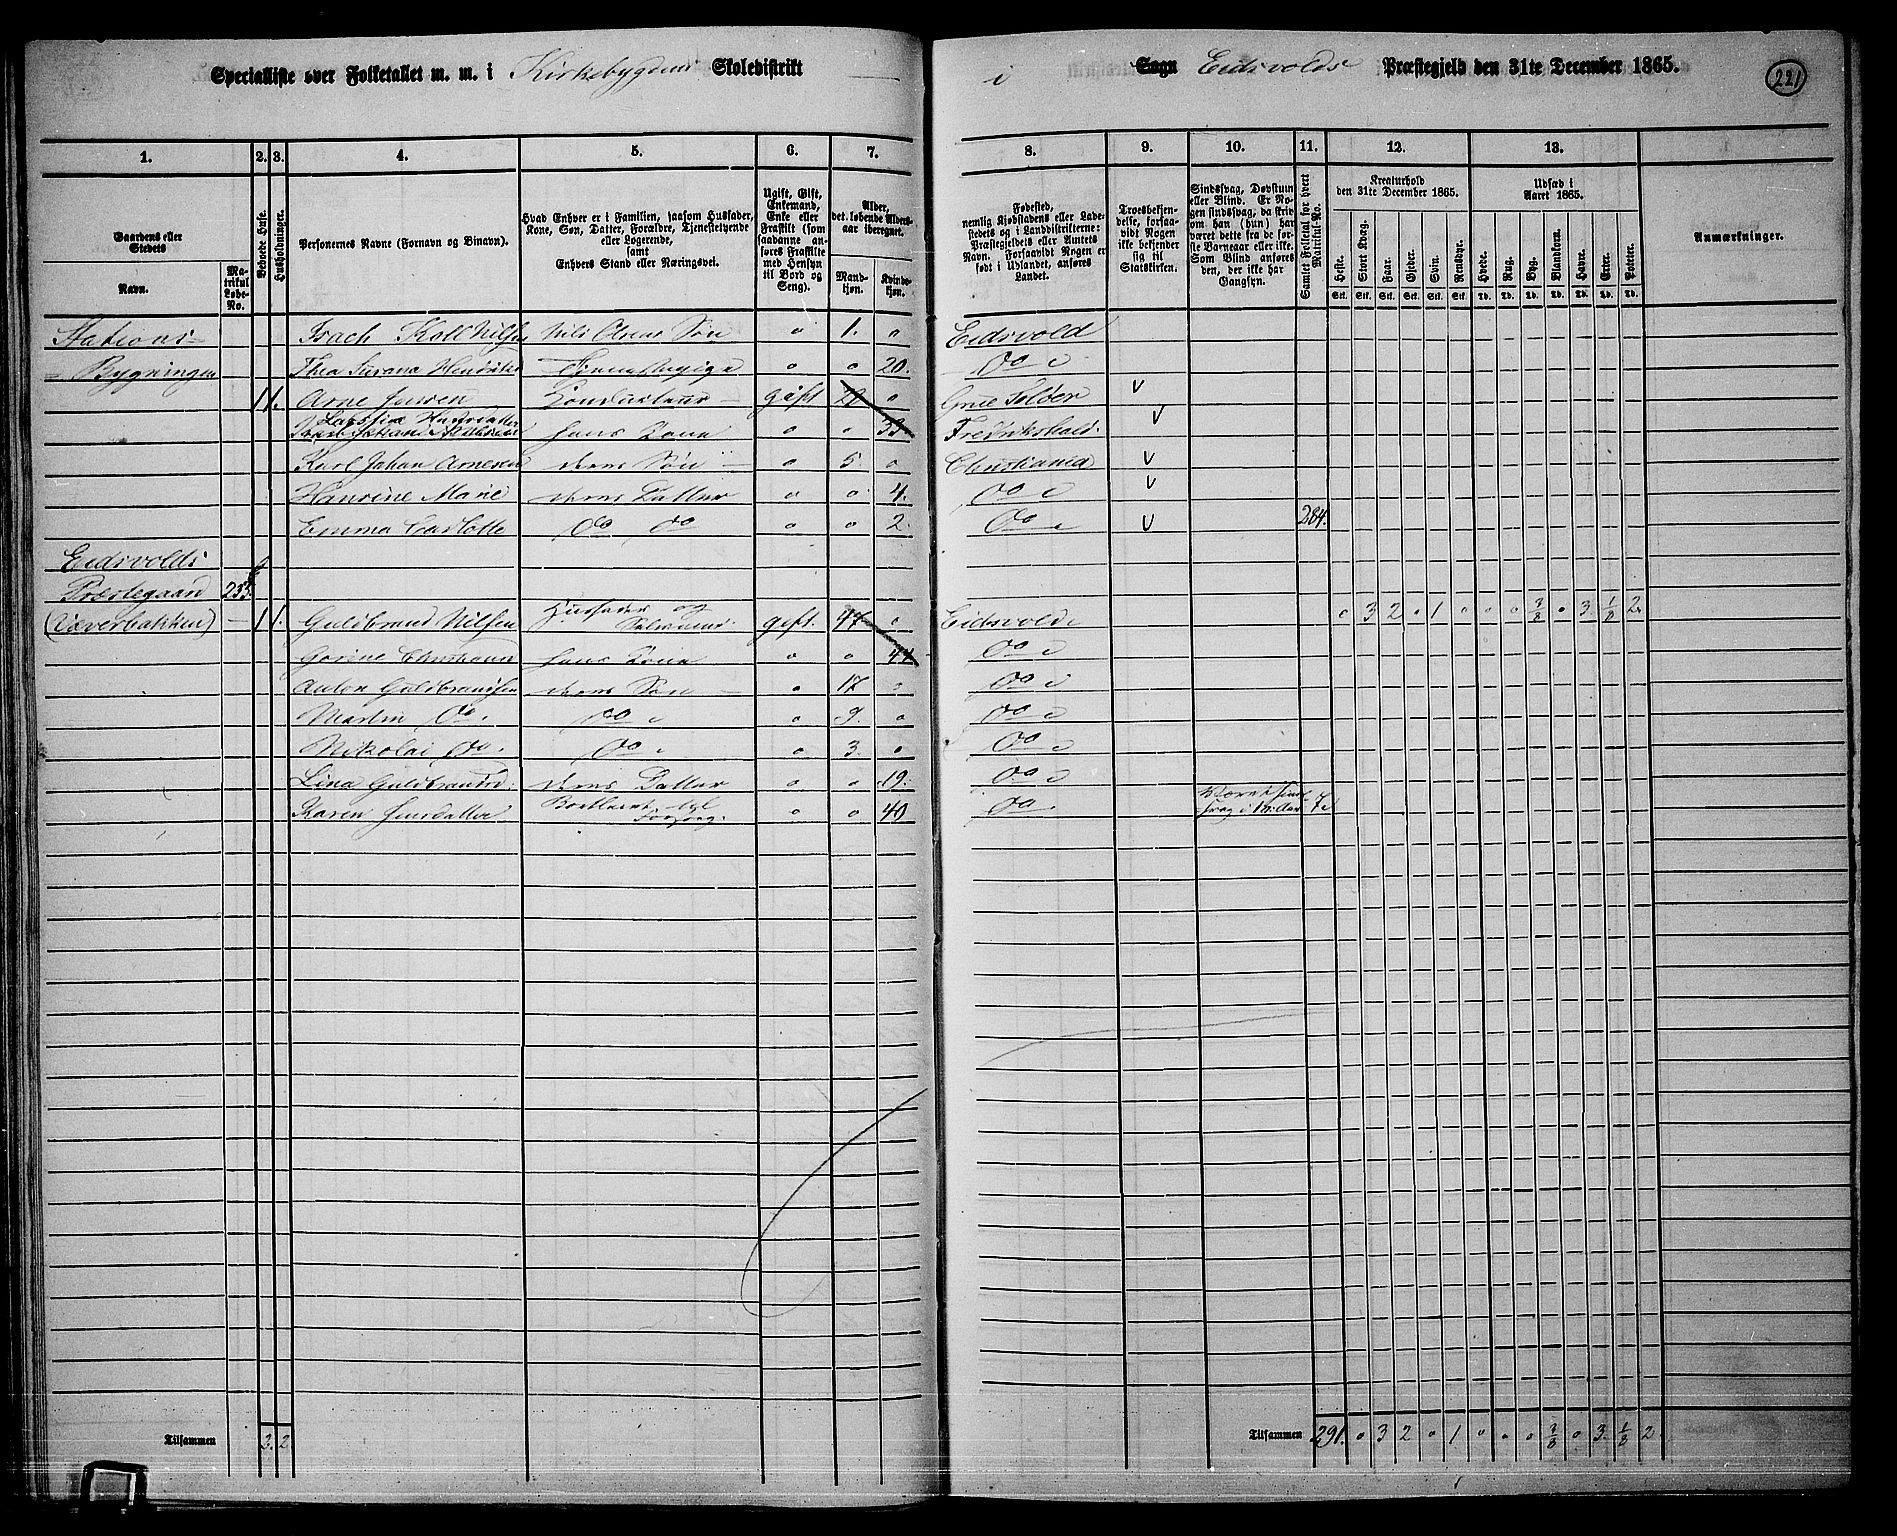 Specialliste over Folketallet m. m. i Kirkebygdens Skoledistrikt
i Sogn Eidsvolds Præstegjeld den 31te December 1865.
221
1.
2.
3.
4.
5.
6.
7.
8.
9.
10.
11.
12.
13.
Gaardens eller Stedets
Navn.
Matrikul Løbe-No.
Beboede Huse.
Husholdninger.
Personernes Navne (Fornavn og Binavn).
Hvad Enhver er i Familien, saasom Husfader, Kone, Søn, Datter, Forældre, Tjenestetyende eller Logerende,
samt
Enhvers Stand eller Næringsvei.
Ugift, Gift, Enkemand, Enke eller Fraskilt (som saadanne anføres Fraskilte med Hensyn til Bord og Seng).
Alder, det løbende Aldersaar iberegnet.
Mandkjøn.
Kvindekjøn.
Fødested,
nemlig Kjøbstadens eller Ladestedets og i Landdistrikterne: Præstegjeldets eller Amtets Navn. Forsaavidt Nogen er født i Udlandet, anføres Landet.
Troesbekjendelse, forsaavidt Nogen ikke bekjender sig til Statskirken.
Sindssvag, Døvstum eller Blind. Er Nogen sindssvag, da skrives om han (hun) har været dette fra de første Barneaar eller ikke. Som Blind anføres den, der ikke har Gangsyn.
Samlet Folketal for hvert Matrikul-No.
Kreaturhold
den 31te December 1865.
Heste.
Stort Kvæg.
Faar.
Gjeder.
Svin.
Rensdyr.
Stk.
Stk.
Stk.
Stk.
Stk.
Stk.
Udsæd i
Aaret 1865.
Hvede.
Rug.
Byg.
Blandkorn.
Havre.
Erter.
Poteter.
Td.
Td.
Td.
Td.
Td.
Td.
Td.
Anmærkninger.
Stations- Isach Koll Nilsen Nils Olsens Søn o 1. o Eidsvold
Bygningen Thea Susana Tjenestepige o o 20. do
1 1. Arne Jensen gift o Grue Solør v
hans Kone o o 33 Fredrikshald v
Karl Johan Arnesen deres Søn o 5 o Christiania v
Hansine Marie deres Datter o o 4. do v
Emma Carlotte do do o o 2. do v 284.
Eidsvolds
Præstegaard 233
1 1. Guldbrand Nilsen Husfader og gift. 47 o Eidsvold o 3 2 o 1 o o o 3/8 o 3 1/8 2
hans Kone o o 44 do
Anton Guldbrandsen deres Søn o 17 o do
Martin do. do o 9. o do
Nikolai do. do o 3. o do
Lina Guldbrandsd: deres Datter o o 19. do
Karen o o 40 do.
Tilsammen 2. 2
Tilsammen 291. o 3 2 o 1 o o o 3/8 o 3. 1/8 2